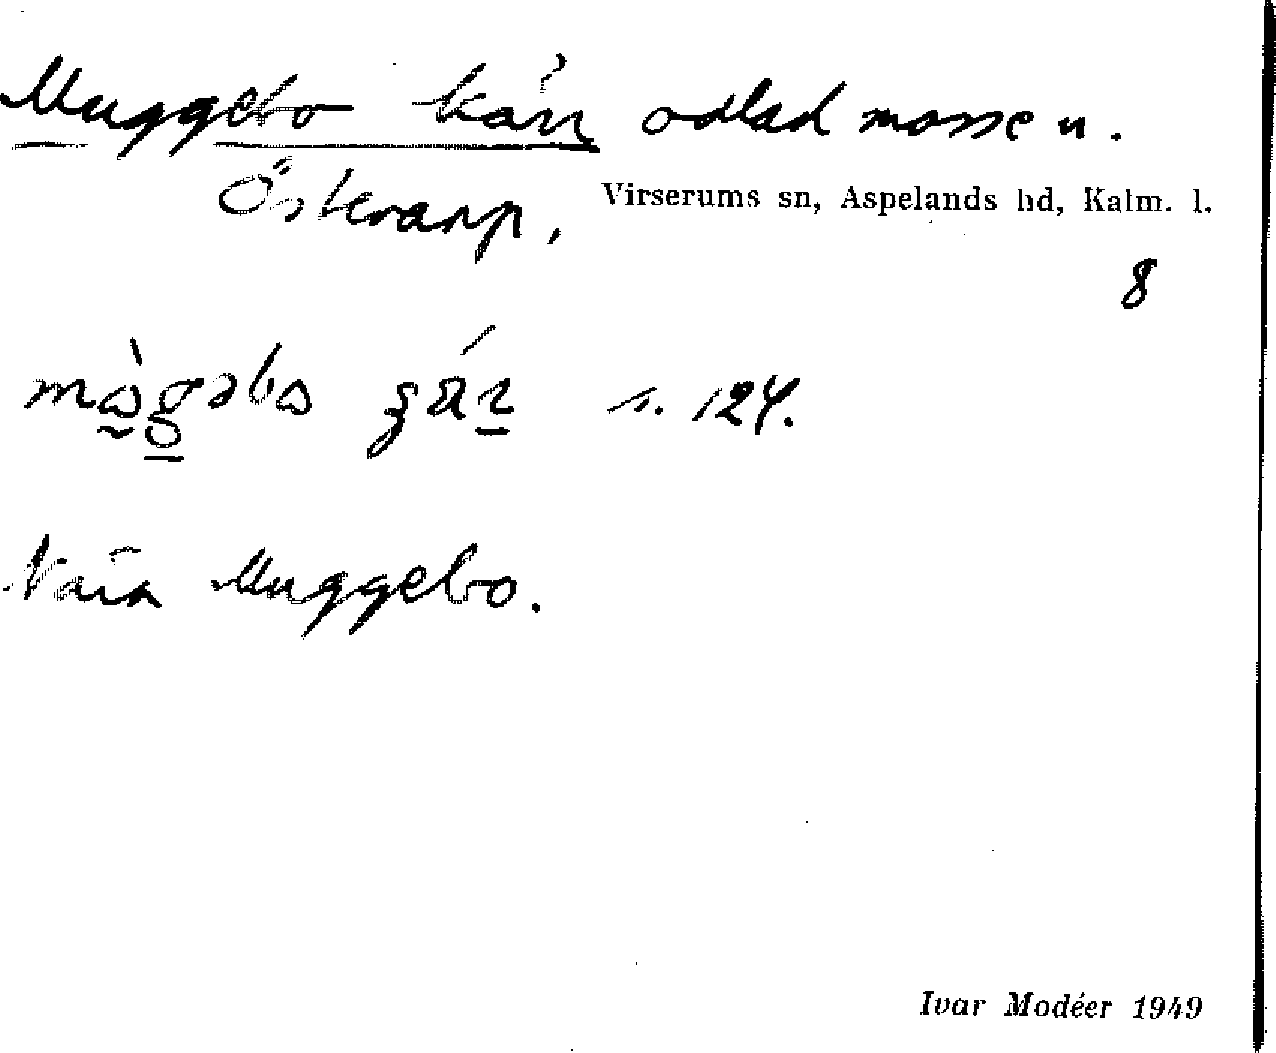 Muggebo kärr odlad mosse u.
Österarp.
Virserums sn, Aspelands hd, Kalm. l.
8
s. 124.
Nära Muggebo.
Ivar Modéer 1949